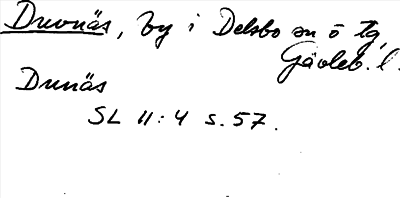 Duvnäs, by i Delsbo sn o tg,
Gävleb. l.
Dunäs
SL 11:4 s. 57.